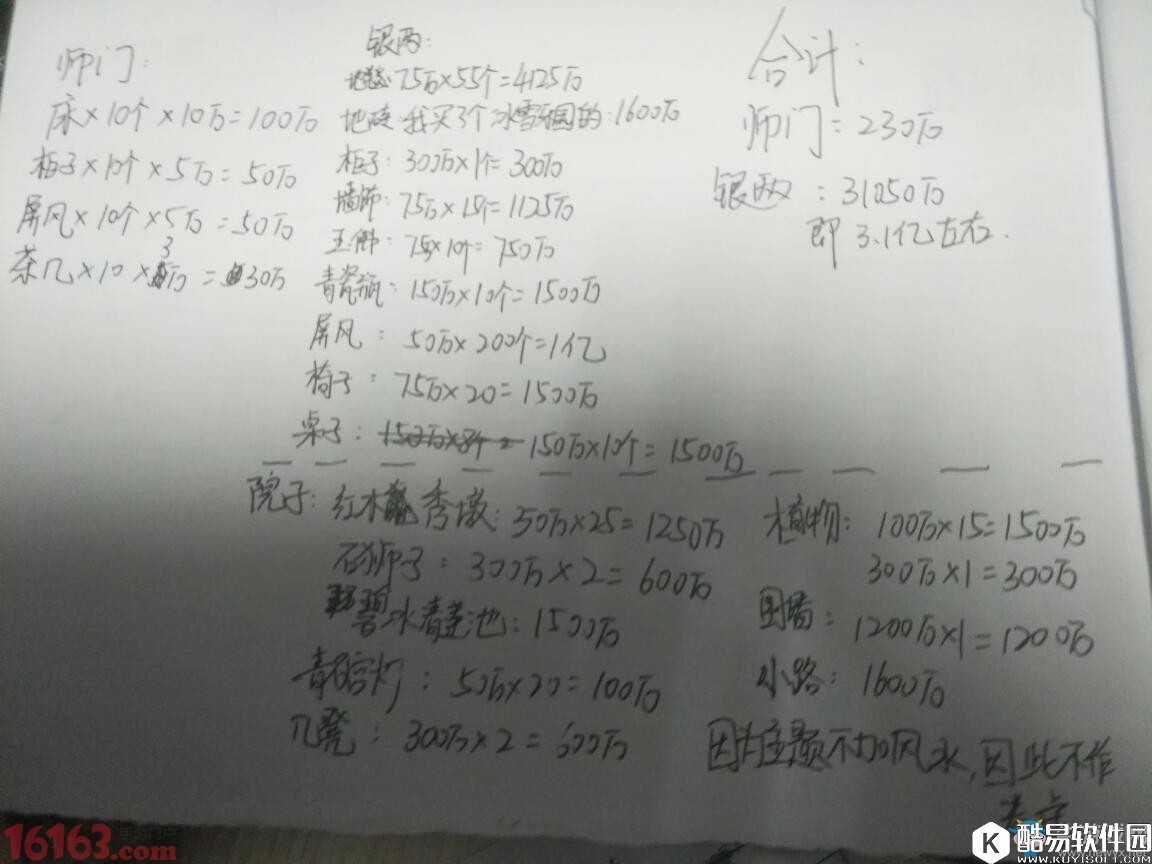 师门:
床×10个×10万=100万
柜子×10个×5万=50万
屏风×10个×5万=50万
茶几×10×3万=30万
银两:
地毯:75万×55个=4125万
地砖:我买了个冰雪乐园的:1600万
柜子:300万×1个=300万
墙饰:75万×15个=1125万
玉佛:75×10个=750万
青瓷瓶:150万×10个=1500万
屏风:50万×200个=1亿
椅子:75万×20=1500万
桌子:150万×10个=1500万
合计:
师门:230万
银两:31050万
即3.1亿左右.
院子:红木秀墩:50万×25=1250万
石狮子:300万×2=600万
碧冰青莲池:1500万
青石宫灯:50万×20=100万
几凳:300万×2=600万
植物:100万×15=1500万
300万×1=300万
围墙:1200万×1=1200万
小路:1600万
因为主题不加风水,因此不作
16163.com
手游门户
K 酷易软件园
www.kuyisoft.com